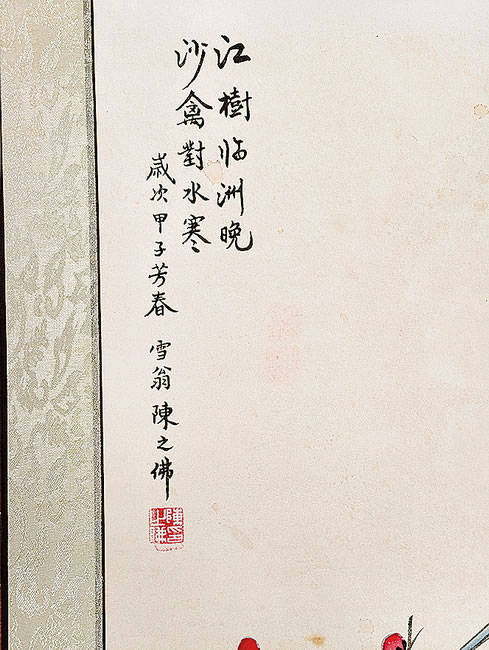 江樹临洲晚
沙禽對水寒
歲次甲子芳春 雪翁陳之佛